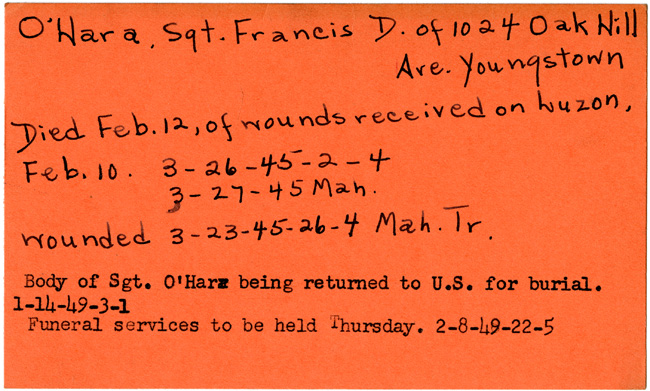 O'Hara, Sgt. Francis D. of 1024 Oak Hill
Ave. Youngstown
Died Feb. 12, of wounds received on Luzon,
Feb. 10. 3-26-45-2-4
3-27-45 Mah.
wounded 3-23-45-26-4 Mah. Tr.
Body of Sgt. O'Hara being returned to U.S. for burial.
1-14-49-3-1
Funeral services to be held Thursday. 2-8-49-22-5